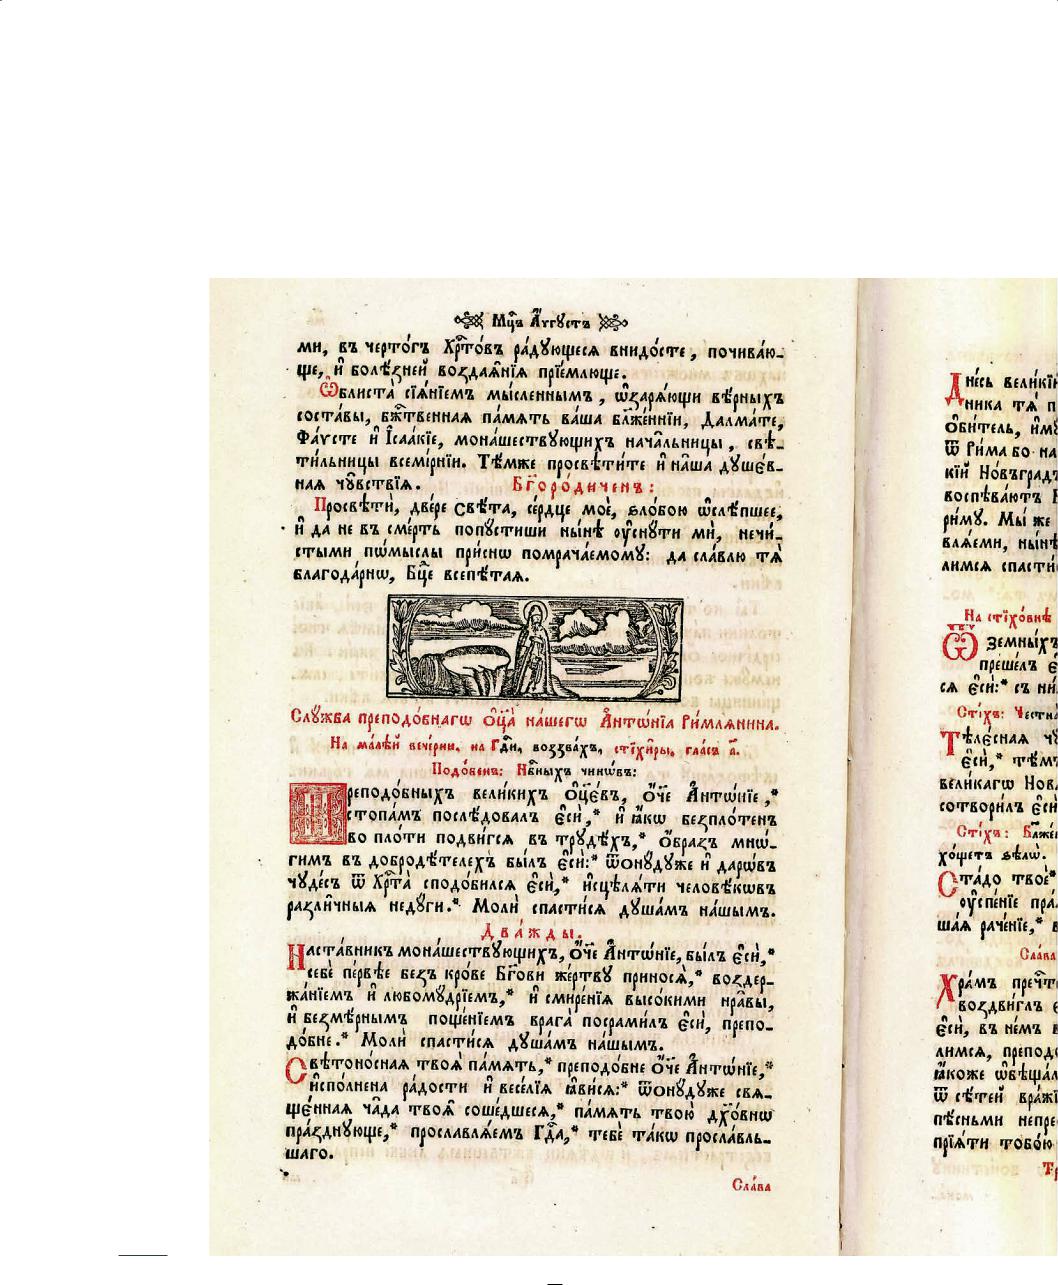 Мцъ Аѵгꙋстъ
ми, въ черто́гъ Хрⷭ҇то́въ ра́дꙋющеся внидо́сте, почива́ю-
ще, и҆ болѣ́зней воздая҆̑нїѧ прїе́млюще.
Ѡ҆блиста̀ сїѧ́нїемъ мы́сленнымъ, ѡ҆заря́ющи вѣ́рныхъ
соста́вы, бж҃е́твенная па́мять ва́ша бл҃же́ннїи, Далма́те,
Фа́ѵсте и҆ І҆саа́кїе, мона́шествꙋющихъ нача́льницы, свѣ-
ти́льницы всемі́рнїи. Тѣ́мже просвѣти́те и҆ на̑ша дꙋшє́в-
ная чꙋ̑вствїя. Бг҃оро́диченъ:
Просвѣти́, две́ре свѣ́та, се́рдце моѐ, ѕло́бою ѡ҆слѣ́пшее,
и҆ да не въ сме́рть попꙋ́стиши ны́нѣ оу҆снꙋ́ти мѝ, нечи́-
стыми по́мыслы при́снѡ помрача́емомꙋ: да сла́влю тѧ̀
благода́рнѡ, Бц҃е всепѣ́тая.
Слꙋ́жба преподо́бнагѡ ѻ҆ц҃а̀ на́шегѡ А҆нтѡ́нїа Ри́млянина.
На ма́лѣй вече́рни, на Гдⷭ҇и, воззва́хъ, стїхи̑ры, гла́съ а҃.
Подо́бенъ: Нбⷭ҇ныхъ чинѡ́въ:
Преподо́бныхъ вели́кихъ ѻ҆ц҃є́въ, ѻ҆́ч҃е А҆нтѡ́нїе,*
стопа́мъ послѣ́довалъ є҆сѝ,* и҆ ꙗ҆́кѡ безпло́тенъ
во пло́ти подви́гся въ трꙋдѣ́хъ,* ѻ҆́бразъ мнѡ́-
гимъ въ добродѣ́телехъ бы́лъ є҆сѝ:* ѿонꙋ́дꙋже и҆ дарѡ́въ
чꙋде́съ ѿ Хрⷭ҇та̀ сподо́бился є҆сѝ,* и҆сцѣля́ти человѣ́кѡвъ
разли́чныя недꙋ́ги.* Молѝ спасти́ся дꙋша́мъ на́шымъ.
Два́жды.
Наста́вникъ мона́шествꙋющихъ, ѻ҆́ч҃е А҆нтѡ́нїе, бы́лъ є҆сѝ,*
себѐ пе́рвѣе безъ кро́ве Бг҃ови же́ртвꙋ принося̀,* воздер-
жа́нїемъ и҆ любомꙋ́дрїемъ,* и҆ смире́нїя высо́кими нра́вы,
и҆ безмѣ́рнымъ поще́нїемъ врага̀ посрами́лъ є҆сѝ, препо-
до́бне.* Молѝ спасти́ся дꙋша́мъ на́шымъ.
Свѣтоно́сная твоя̀ па́мять,* преподо́бне ѻ҆́ч҃е А҆нтѡ́нїе,*
и҆спо́лнена ра́дости и҆ весе́лїя ꙗ҆ви́ся:* ѿонꙋ́дꙋже свя-
щє́нная ча̑да твоя̑ соше́дшеся,* па́мять твою̀ дх҃о́внѡ
пра́зднꙋюще,* прославля́емъ Гдⷭ҇а,* тебѐ та́кѡ просла́вль-
шаго.
Сла́ва
Дне́сь вели́кїй
ника тя̀ п
ѻ҆би́тель, и҆мꙋ
ѿ Ри́ма бо на
кїй Но́въградъ
воспѣва́ютъ
ри́мꙋ. Мы́ же
вля́еми, ны́нѣ
лимся спасти́
На стїхо́внѣ
Ѿ земны́хъ
преше́лъ є҆
ся є҆сѝ:* съ ни́
Сті́хъ: Честна̀
Тѣле́сная чꙋ
є҆сѝ,* тѣ́м
вели́кагѡ Нов
сотвори́лъ є҆сѝ
Сті́хъ: Бл҃же́
хо́щетъ ѕѣлѡ̀.
Ста́до твоѐ*
оу҆спе́нїе пра
шая раче́нїе,* в
Сла́ва
Хра́мъ пречⷭ҇т
воздви́глъ є҆
є҆сѝ, въ не́мъ
лимся, преподо́
ꙗ҆́коже ѡ҆бѣща́л
ѿ сѣте́й вра́жї
пѣ́сньми непре
прїя́ти тобо́ю
Тр